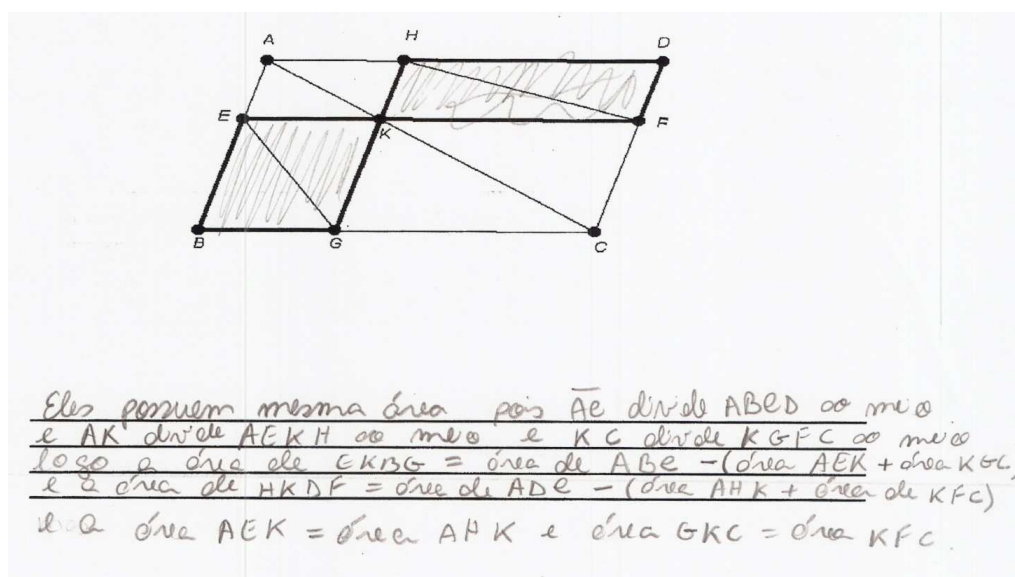 A H D
E K F
B G C
Eles possuem mesma área pois AC divide ABCD ao meio
e AK divide AEKH ao meio e KC divide KGFC ao meio
logo a área de EKBG = área de ABC - (área AEK + área KGC)
e a área de HKDF = área de ADC - (área AHK + área de KFC)
e a área AEK = área AHK e área GKC = área KFC.